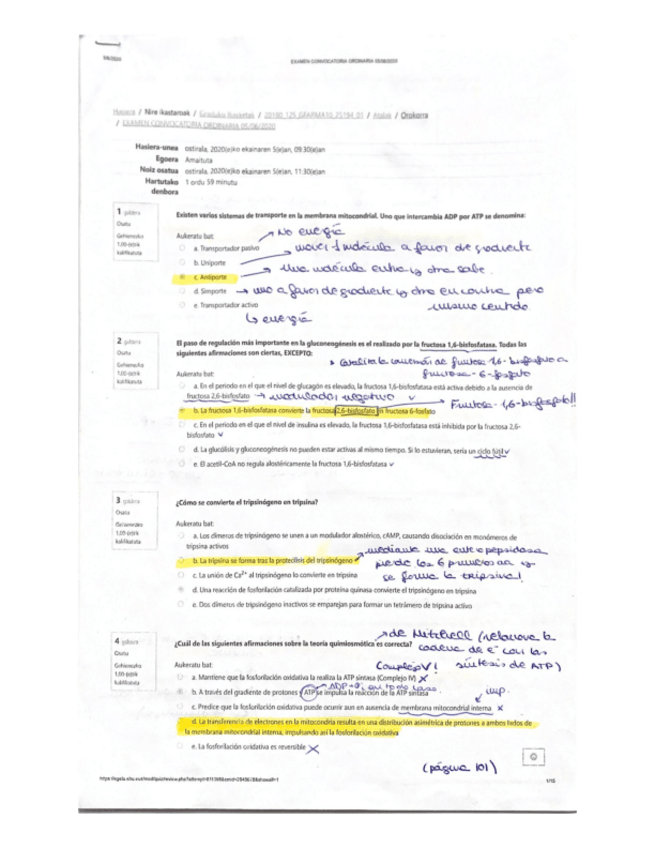 5/6/2020
EXAMEN CONVOCATORIA ORDINARIA 05/06/2020
Hasiera / Nire ikastaroak / Graduko Ikasketak / / Atalak / Orokorra
/ EXAMEN CONVOCATORIA ORDINARIA 05/06/2020
Hasiera-unea ostirala, 2020(e)ko ekainaren 5(e)an, 09:30(e)an
Egoera Amaituta
Noiz osatua ostirala, 2020(e)ko ekainaren 5(e)an, 11:30(e)an
Hartutako denbora 1 ordu 59 minutu
1 galdera
Osatu
Gehienezko 1,00-(e)tik kalifikatuta
Existen varios sistemas de transporte en la membrana mitocondrial. Uno que intercambia ADP por ATP se denomina:
Aukeratu bat:
→ No energía
a. Transportador pasivo
→ mover 1 molécula a favor de gradiente
b. Uniporte
c. Antiporte
→ Una molécula entra y otra sale.
d. Simporte → uno a favor de gradiente y otro en contra pero
mismo sentido
e. Transportador activo
↳ energía
2 galdera
Osatu
Gehienezko 1,00-(e)tik kalifikatuta
El paso de regulación más importante en la gluconeogénesis es el realizado por la fructosa 1,6-bisfosfatasa. Todas las
siguientes afirmaciones son ciertas, EXCEPTO:
fructosa 1,6-bisfosfato a
fructosa-6-fosfato
Aukeratu bat:
a. En el periodo en el que el nivel de glucagón es elevado, la fructosa 1,6-bisfosfatasa está activa debido a la ausencia de
fructosa 2,6-bisfosfato → modulador negativo v
Fructosa-1,6-bisfosfato!!
b. La fructosa 1,6-bisfosfatasa convierte la fructosa 2,6-bisfosfato en fructosa 6-fosfato
c. En el periodo en el que el nivel de insulina es elevado, la fructosa 1,6-bisfosfatasa está inhibida por la fructosa 2,6-
bisfosfato v
d. La glucólisis y gluconeogénesis no pueden estar activas al mismo tiempo. Si lo estuvieran, sería un ciclo fútil v
e. El acetil-CoA no regula alostéricamente la fructosa 1,6-bisfosfatasa v
3 galdera
Osatu
Gehienezko 1,00-(e)tik kalifikatuta
¿Cómo se convierte el tripsinógeno en tripsina?
Aukeratu bat:
a. Los dímeros de tripsinógeno se unen a un modulador alostérico, cAMP, causando disociación en monómeros de
tripsina activos
mediante una enteropepsidasa
b. La tripsina se forma tras la proteólisis del tripsinógeno
pierde los 6 primeros aa y
c. La unión de Ca2+ al tripsinógeno lo convierte en tripsina
se forma la tripsina!
d. Una reacción de fosforilación catalizada por proteína quinasa convierte el tripsinógeno en tripsina
e. Dos dímeros de tripsinógeno inactivos se emparejan para formar un tetrámero de tripsina activo
4 galdera
Osatu
Gehienezko 1,00-(e)tik kalifikatuta
→ de Mitchell (relaciona la
cadena de e- con la
síntesis de ATP)
¿Cuál de las siguientes afirmaciones sobre la teoría quimiosmótica es correcta?
Aukeratu bat:
Complejo V!
a. Mantiene que la fosforilación oxidativa la realiza la ATP sintasa (Complejo IV) X
en todo caso
b. A través del gradiente de protones y ATP se impulsa la reacción de la ATP sintasa
imp.
c. Predice que la fosforilación oxidativa puede ocurrir aun en ausencia de membrana mitocondrial interna X
d. La transferencia de electrones en la mitocondria resulta en una distribución asimétrica de protones a ambos lados de
la membrana mitocondrial interna, impulsando así la fosforilación oxidativa
e. La fosforilación oxidativa es reversible X
(página 101)
1/10